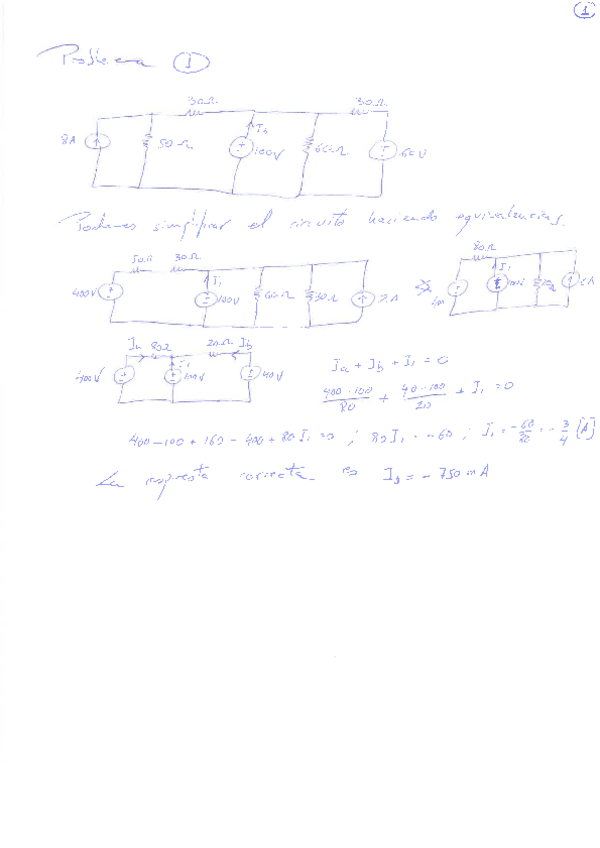 1
Problema 1
30Ω 30Ω
8A 50Ω I1 100V 60Ω 60V
Podemos simplificar el circuito haciendo equivalencias.
50Ω 30Ω 80Ω
400V I1 100V 60Ω 30Ω 2A I1
Ia 80Ω 20Ω Ib
400V I1 100V 40V
Ia + Ib + I1 = 0
400-100/80 + 40-100/20 + I1 = 0
400-100+160-400+80I1=0 ; 80I1=-60 ; I1=-60/80=-3/4 [A]
La respuesta correcta es I1 = -750mA